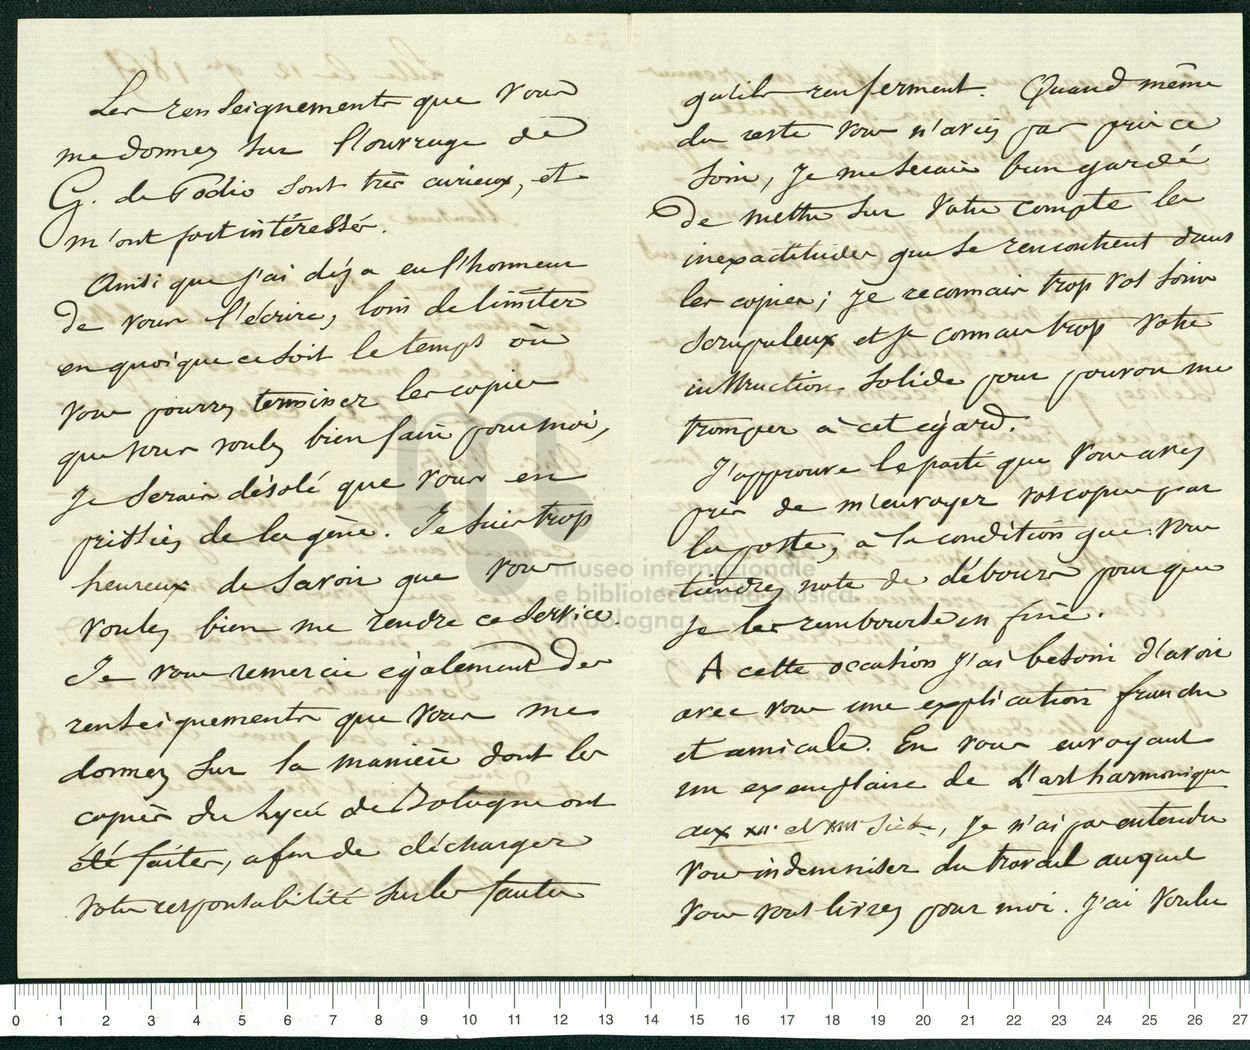 Les renseignements que vous
me donnez sur l'ouvrage de
G. de Podio sont très curieux, et
m'ont fort intéressé.
Ainsi que j'ai déja eu l'honneur
de vous l'écrire, loin de limiter
en quoique ce soit le temps où
vous pourrez terminer les copies
que vous voulez bien faire pour moi,
je serais désolé que vous en
prissiez de la gène. Je suis trop
heureux de savoir que vous
voulez bien me rendre ce service.
Je vous remercie également des
renseignements que vous me
donnez sur la manière dont les
copies du Lycée de Bologne ont
été faites, afin de décharger
votre responsabilité sur les fautes
qu'ils renferment. Quand même
du reste vous n'aviez pas pris ce
soin, je me serais bien gardé
de mettre sur votre compte les
inexactitudes que se rencontrent dans
les copies; je reconnais trop vos soins
scrupuleux et je connais trop votre
instruction solide pour pouvoir me
tromper à cet égard.
J'approuve le parti que vous avez
pris de m'envoyer vos copies par
la poste, à la condition que vous
tiendrez note de débours pour que
je les rembourse in fine.
A cette occasion j'ai besoin d'avoir
avec vous une explication franche
et amicale. En vous envoyant
un exemplaire de L'art harmonique
aux XIIe et XIIIe Siècles, je n'ai pas entendu
vous indemniser du travail auquel
vous vous livrez pour moi. J'ai voulu
museo internazionale
e biblioteca della musica
di bologna
0 1 2 3 4 5 6 7 8 9 10 11 12 13 14 15 16 17 18 19 20 21 22 23 24 25 26 27